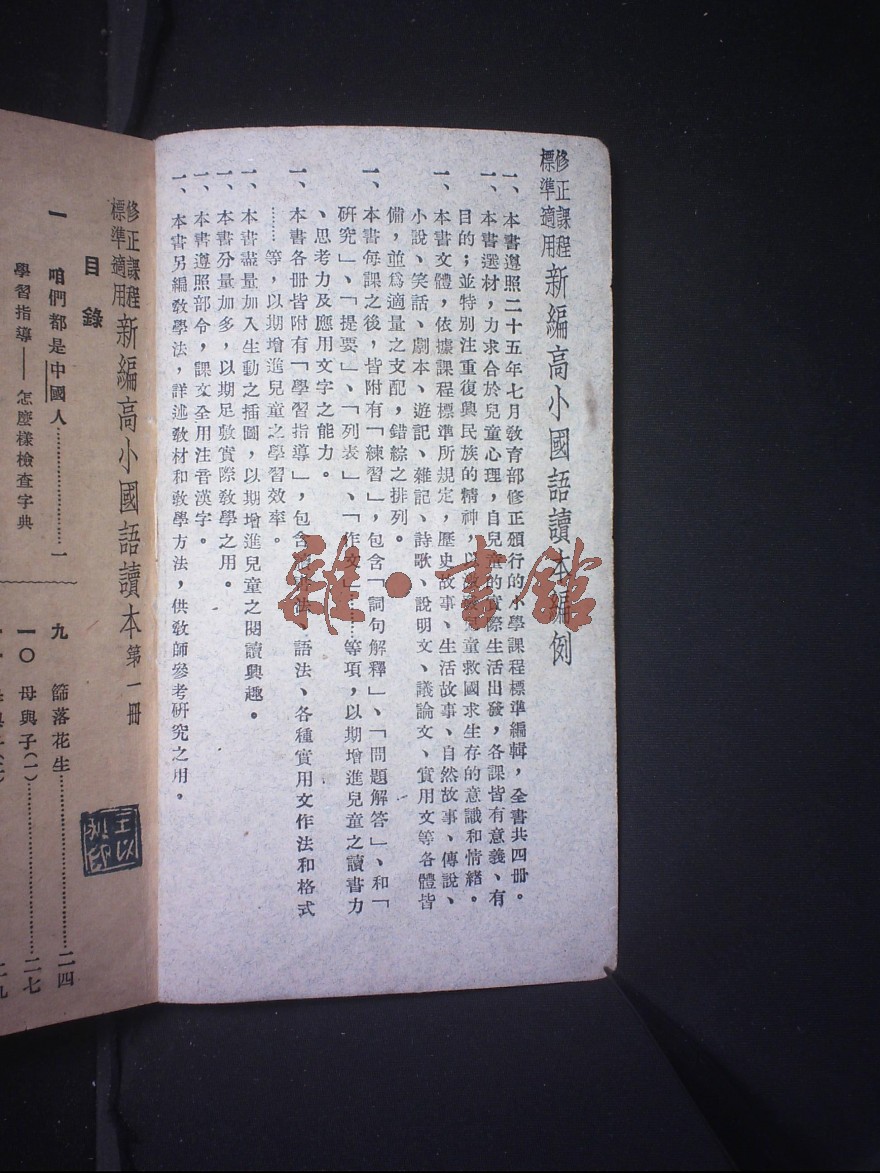 修正課程
標準適用
新編高小國語讀本編例
一、本書遵照二十五年七月教育部修正頒行的小學課程標準編輯，全書共四冊。
一、本書選材，力求合於兒童心理，自兒童的實際生活出發，各課皆有意義、有
目的；並特別注重復興民族的精神，以兒童救國求生存的意識和情緒。
一、本書文體，依據課程標準所規定，歷史故事、生活故事、自然故事、傳說、
小說、笑話、劇本、遊記、雜記、詩歌、說明文、議論文、實用文等各體皆
備，並爲適量之支配，錯綜之排列。
一、本書每課之後，皆附有「練習」，包含「詞句解釋」、「問題解答」、和「
研究」、「提要」、「列表」、「作文」……等項，以期增進兒童之讀書力
、思考力及應用文字之能力。
一、本書各冊皆附有「學習指導」，包含法、語法、各種實用文作法和格式
……等，以期增進兒童之學習效率。
一、本書盡量加入生動之插圖，以期增進兒童之閱讀興趣。
一、本書分量加多，以期足敷實際教學之用。
一、本書遵照部令，課文全用注音漢字。
一、本書另編教學法，詳述教材和教學方法，供教師參考研究之用。
雜·書館
修正課程
標準適用
新編高小國語讀本第一冊
目錄
一 咱們都是中國人…………………一
學習指導——怎麼樣檢查字典
九 篩落花生…………………二四
一〇 母與子(一)…………………二七